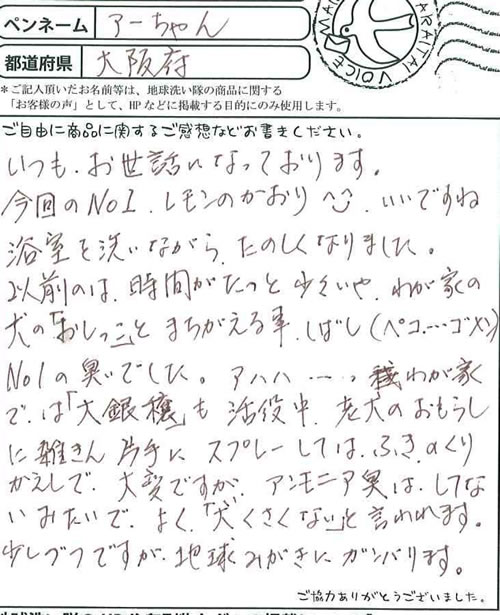 ペンネーム アーちゃん
都道府県 大阪府
*ご記入頂いたお名前等は、地球洗い隊の商品に関する
「お客様の声」として、HPなどに掲載する目的にのみ使用します。
ご自由に商品に関するご感想などお書きください。
いつも、お世話になっております。
今回のNo1、レモンのかおり、いいですね
浴室を洗いながら、たのしくなりました。
以前のは、時間がたつと少々いや、わが家の
犬の「おしっこ」とまちがえる事、しばし(ペコ…ゴメン)
No1の臭いでした。アハハ…。わが家
では「大銀穣」も活役中、老犬のおもらし
に雑きん片手にスプレーしては、ふき、のくり
かえしで、大変ですが、アンモニア臭は、してな
いみたいで、よく、「犬くさくない」と言われます。
少しづつですが、地球みがきにガンバります。
ご協力ありがとうございました。
VOICE